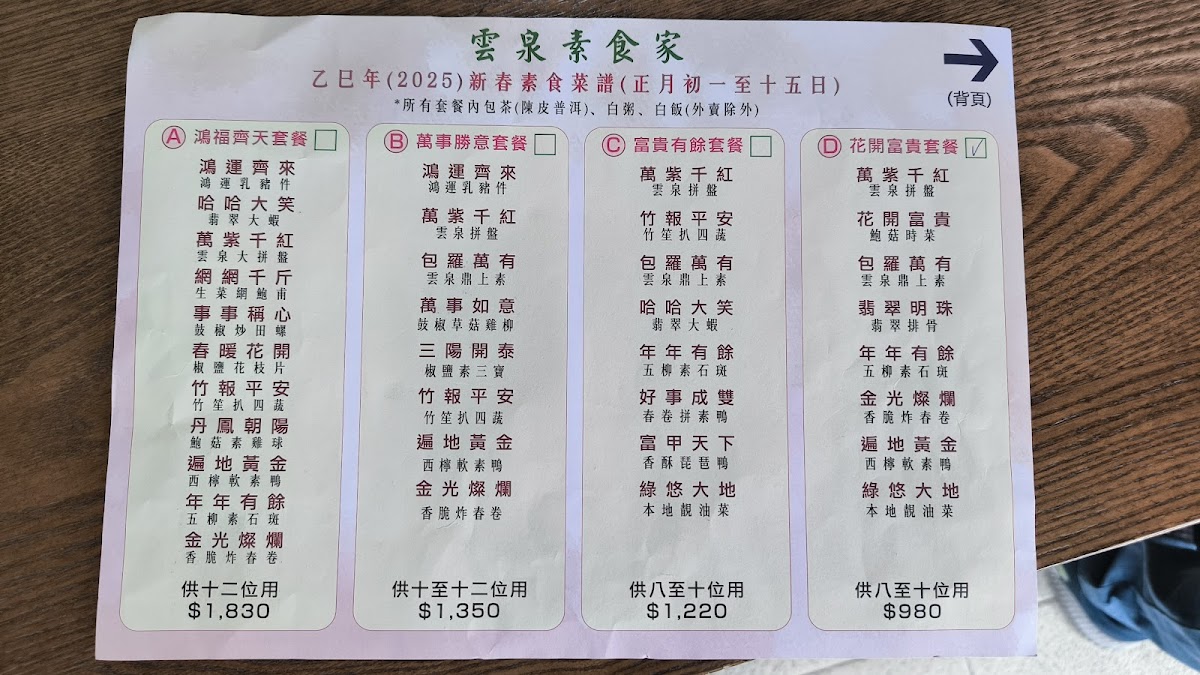 雲泉素食家
乙巳年(2025)新春素食菜譜(正月初一至十五日)
*所有套餐內包茶(陳皮普洱)、白粥、白飯(外賣除外)
(背頁)
A 鴻福齊天套餐
鴻運齊來
鴻運乳豬件
哈哈大笑
翡翠大蝦
萬紫千紅
雲泉大拼盤
網網千斤
生菜網鮑甫
事事稱心
鼓椒炒田螺
春暖花開
椒鹽花枝片
竹報平安
竹笙扒四蔬
丹鳳朝陽
鮑菇素雞球
遍地黃金
西檸軟素鴨
年年有餘
五柳素石斑
金光燦爛
香脆炸春卷
供十二位用
$1,830
B 萬事勝意套餐
鴻運齊來
鴻運乳豬件
萬紫千紅
雲泉拼盤
包羅萬有
雲泉鼎上素
萬事如意
鼓椒草菇雞柳
三陽開泰
椒鹽素三寶
竹報平安
竹笙扒四蔬
遍地黃金
西檸軟素鴨
金光燦爛
香脆炸春卷
供十至十二位用
$1,350
C 富貴有餘套餐
萬紫千紅
雲泉拼盤
竹報平安
竹笙扒四蔬
包羅萬有
雲泉鼎上素
哈哈大笑
翡翠大蝦
年年有餘
五柳素石斑
好事成雙
春卷拼素鴨
富甲天下
香酥琵琶鴨
綠悠大地
本地靚油菜
供八至十位用
$1,220
D 花開富貴套餐
萬紫千紅
雲泉拼盤
花開富貴
鮑菇時菜
包羅萬有
雲泉鼎上素
翡翠明珠
翡翠排骨
年年有餘
五柳素石斑
金光燦爛
香脆炸春卷
遍地黃金
西檸軟素鴨
綠悠大地
本地靚油菜
供八至十位用
$980